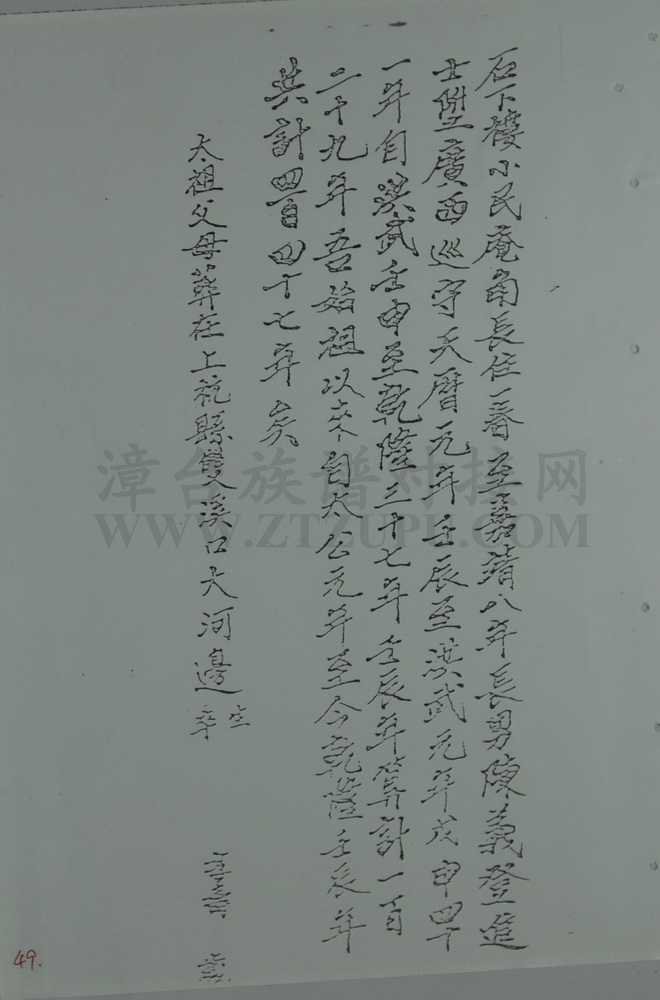 石下樓小民庵角長住一春至嘉靖八年長男陳義登進
士陞廣西巡守天曆元年壬辰至洪武元年戊申四十
一年自洪武壬申至乾隆三十七年壬辰年算計一百
二十九年吾始祖以來自太公元年至今乾隆壬辰年
共計四百四十七年矣
太祖父母葬在上杭縣雙溪口大河邊
生
卒
享壽
漳台族谱对接网
WWW.ZTZUPU.COM
49.